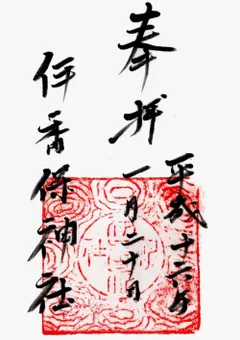 奉拝
平成二十六年
一月二十日
伊香保神社